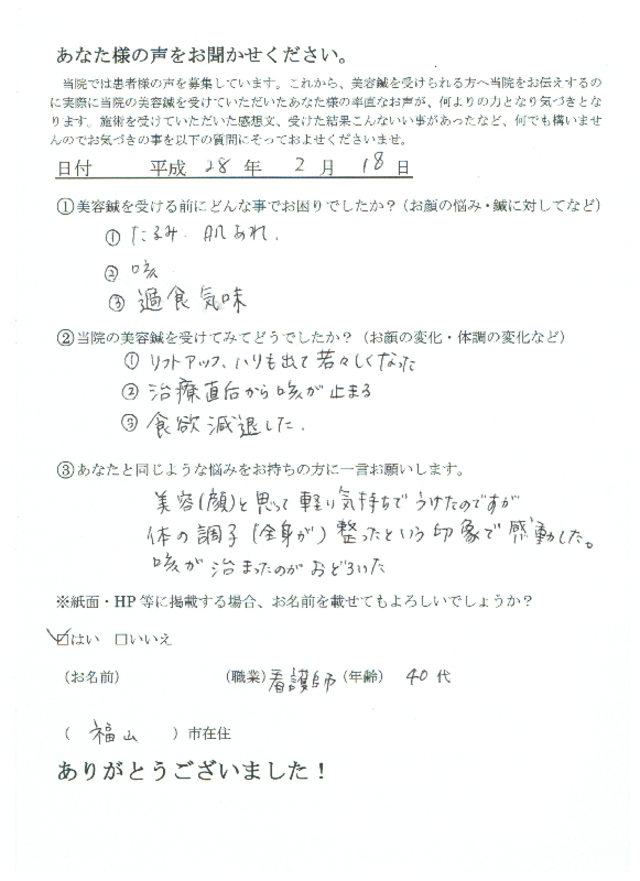 あなた様の声をお聞かせください。
当院では患者様の声を募集しています。これから、美容鍼を受けられる方へ当院をお伝えするの
に実際に当院の美容鍼を受けていただいたあなた様の率直なお声が、何よりの力となり気づきとな
ります。施術を受けていただいた感想文、受けた結果こんないい事があったなど、何でも構いませ
んのでお気づきの事を以下の質問にそっておよせくださいませ。
日付　平成 28 年 2 月 18 日
①美容鍼を受ける前にどんな事でお困りでしたか？（お顔の悩み・鍼に対してなど）
① たるみ. 肌あれ.
② 咳
③ 過食気味
②当院の美容鍼を受けてみてどうでしたか？（お顔の変化・体調の変化など）
① リフトアップ、ハリも出て若々しくなった
② 治療直后から咳が止まる
③ 食欲減退した.
③あなたと同じような悩みをお持ちの方に一言お願いします。
美容(顔)と思って軽い気持ちでうけたのですが
体の調子(全身が)整ったという印象で感動した。
咳が治まったのがおどろいた
※紙面・HP 等に掲載する場合、お名前を載せてもよろしいでしょうか？
☑はい　□いいえ
（お名前）　（職業）看護師（年齢） 40 代
（ 福山 ）市在住
ありがとうございました！